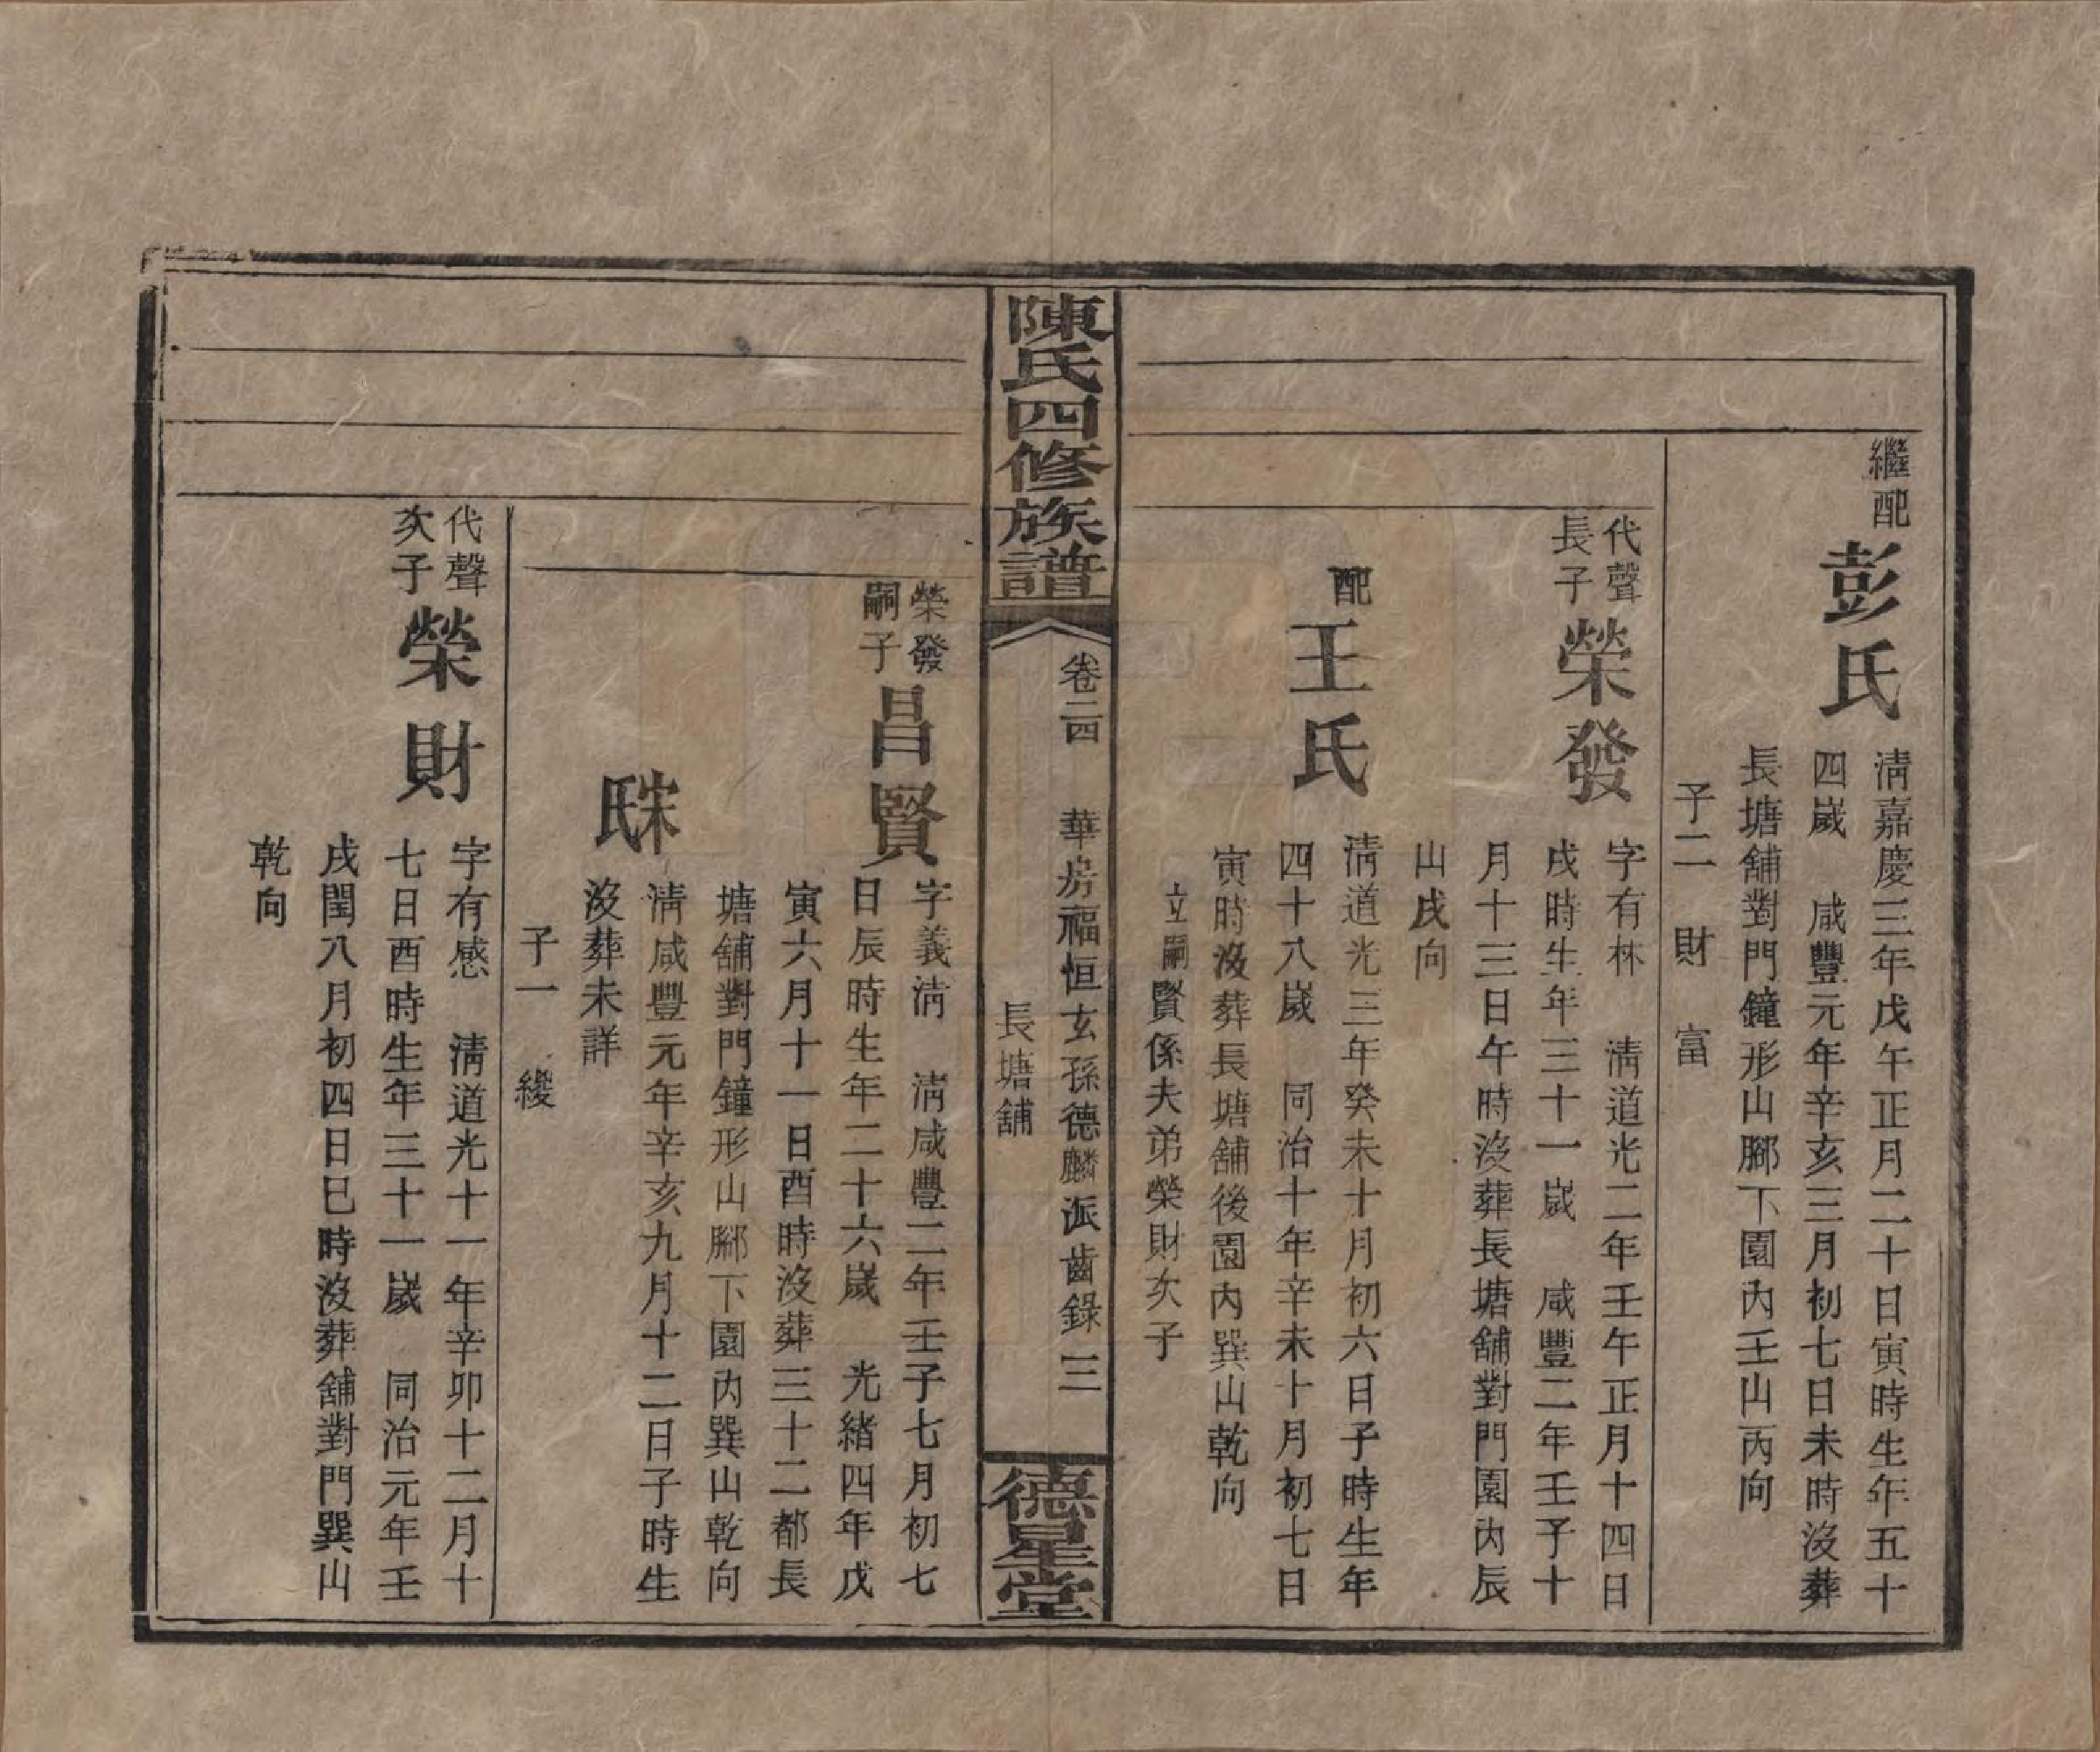 繼配
彭氏
淸嘉慶三年戊午正月二十日寅時生年五十
四歲　咸豐元年辛亥三月初七日未時沒葬
長塘舖對門鐘形山腳下園內壬山丙向
子二　財　富
代聲
長子
榮發
字有林　淸道光二年壬午正月十四日
戌時生年三十一歲　咸豐二年壬子十
月十三日午時沒葬長塘舖對門園內辰
山戌向
配
王氏
淸道光三年癸未十月初六日子時生年
四十八歲　同治十年辛未十月初七日
寅時沒葬長塘舖後園內巽山乾向
立嗣賢係夫弟榮財次子
陳氏四修族譜
卷二四　華房福恒玄孫德麟派齒錄　三
長塘舖
德星堂
榮發
嗣子
昌賢
字義淸　淸咸豐二年壬子七月初七
日辰時生年二十六歲　光緒四年戊
寅六月十一日酉時沒葬三十二都長
塘舖對門鐘形山腳下園內巽山乾向
宋氏
淸咸豐元年辛亥九月十二日子時生
沒葬未詳
子一　緩
代聲
次子
榮財
字有感　淸道光十一年辛卯十二月十
七日酉時生年三十一歲　同治元年壬
戌閏八月初四日巳時沒葬舖對門巽山
乾向